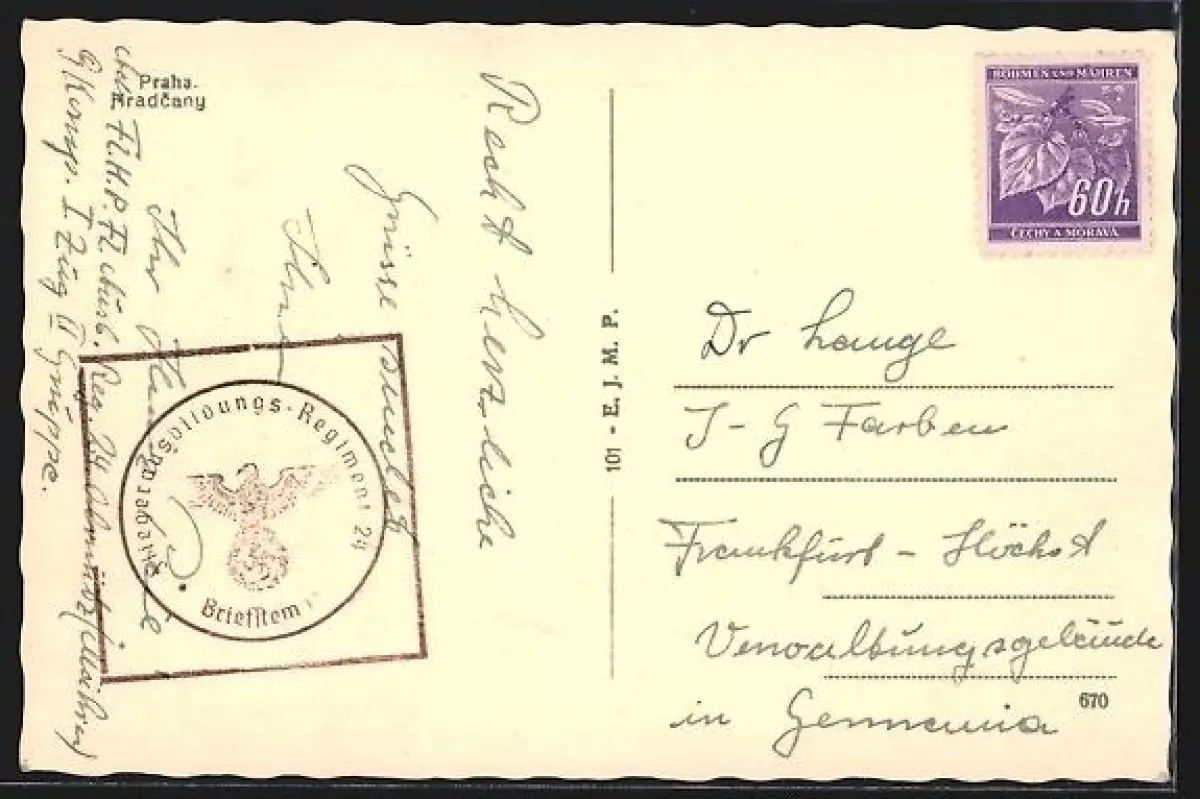 Praha.
Hradčany
Recht herzliche
Grüsse sendet
Ihnen
Ihr
Fl. H. P. Fl. Ausb. Reg. 24 Olmütz (Mähren)
Komp. I Zug II Gruppe.
Fliegerausbildungs-Regiment 24
Briefstem
101 - E. J. M. P.
BÖHMEN UND MÄHREN
60h
ČECHY A MORAVA
Dr Lange
I-G Farben
Frankfurt - Höchst
Verwaltungsgebäude
in Germania
670